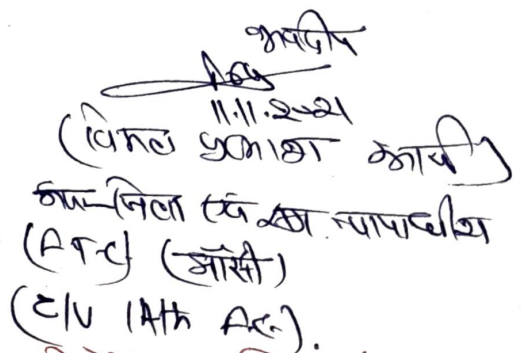 भवदीय
11.11.2021
(विमल प्रकाश आर्य)
अपर जिला एवं सत्र न्यायाधीश
(FTC) (झाँसी)
(E/U 14th